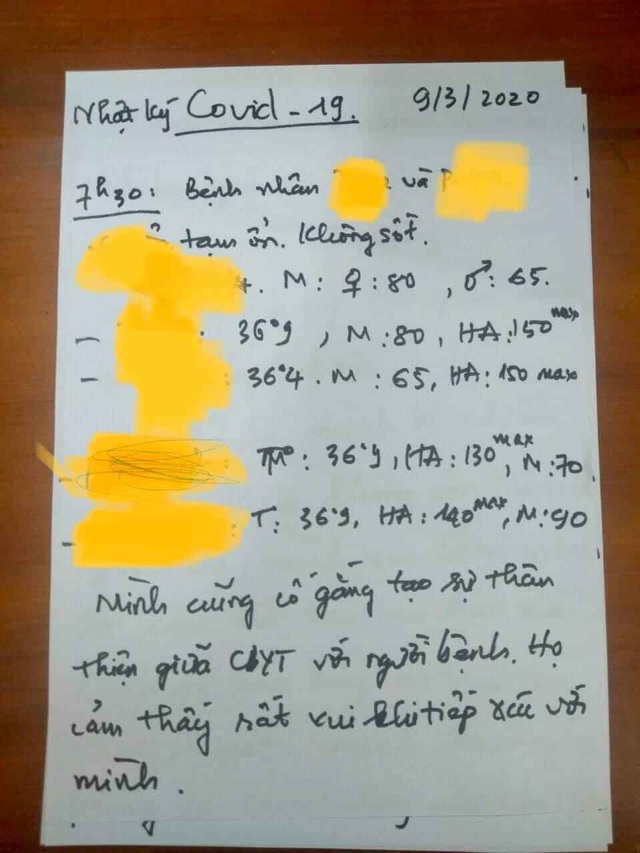 Nhật ký Covid-19. 9/3/2020
7h30: Bệnh nhân và
tạm ổn. Không sốt.
M: ♀: 80, ♂: 65.
- 36°9, M: 80, HA: 150 max
- : 36°4. M: 65, HA: 150 max
: 36°9, HA: 130 max, M: 70.
- : T: 36°9, HA: 140 max, M: 90
Mình cũng cố gắng tạo sự thân
thiện giữa CBYT với người bệnh. Họ
cảm thấy rất vui khi tiếp xúc với
mình.